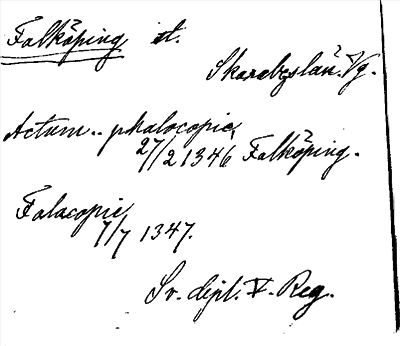 Falköping st.
Skaraborgs län. Vg.
Actum.. phalocopie,
27/2 1346 Falköping.
Falacopie,
7/7 1347.
Sv. dipl. V. Reg.